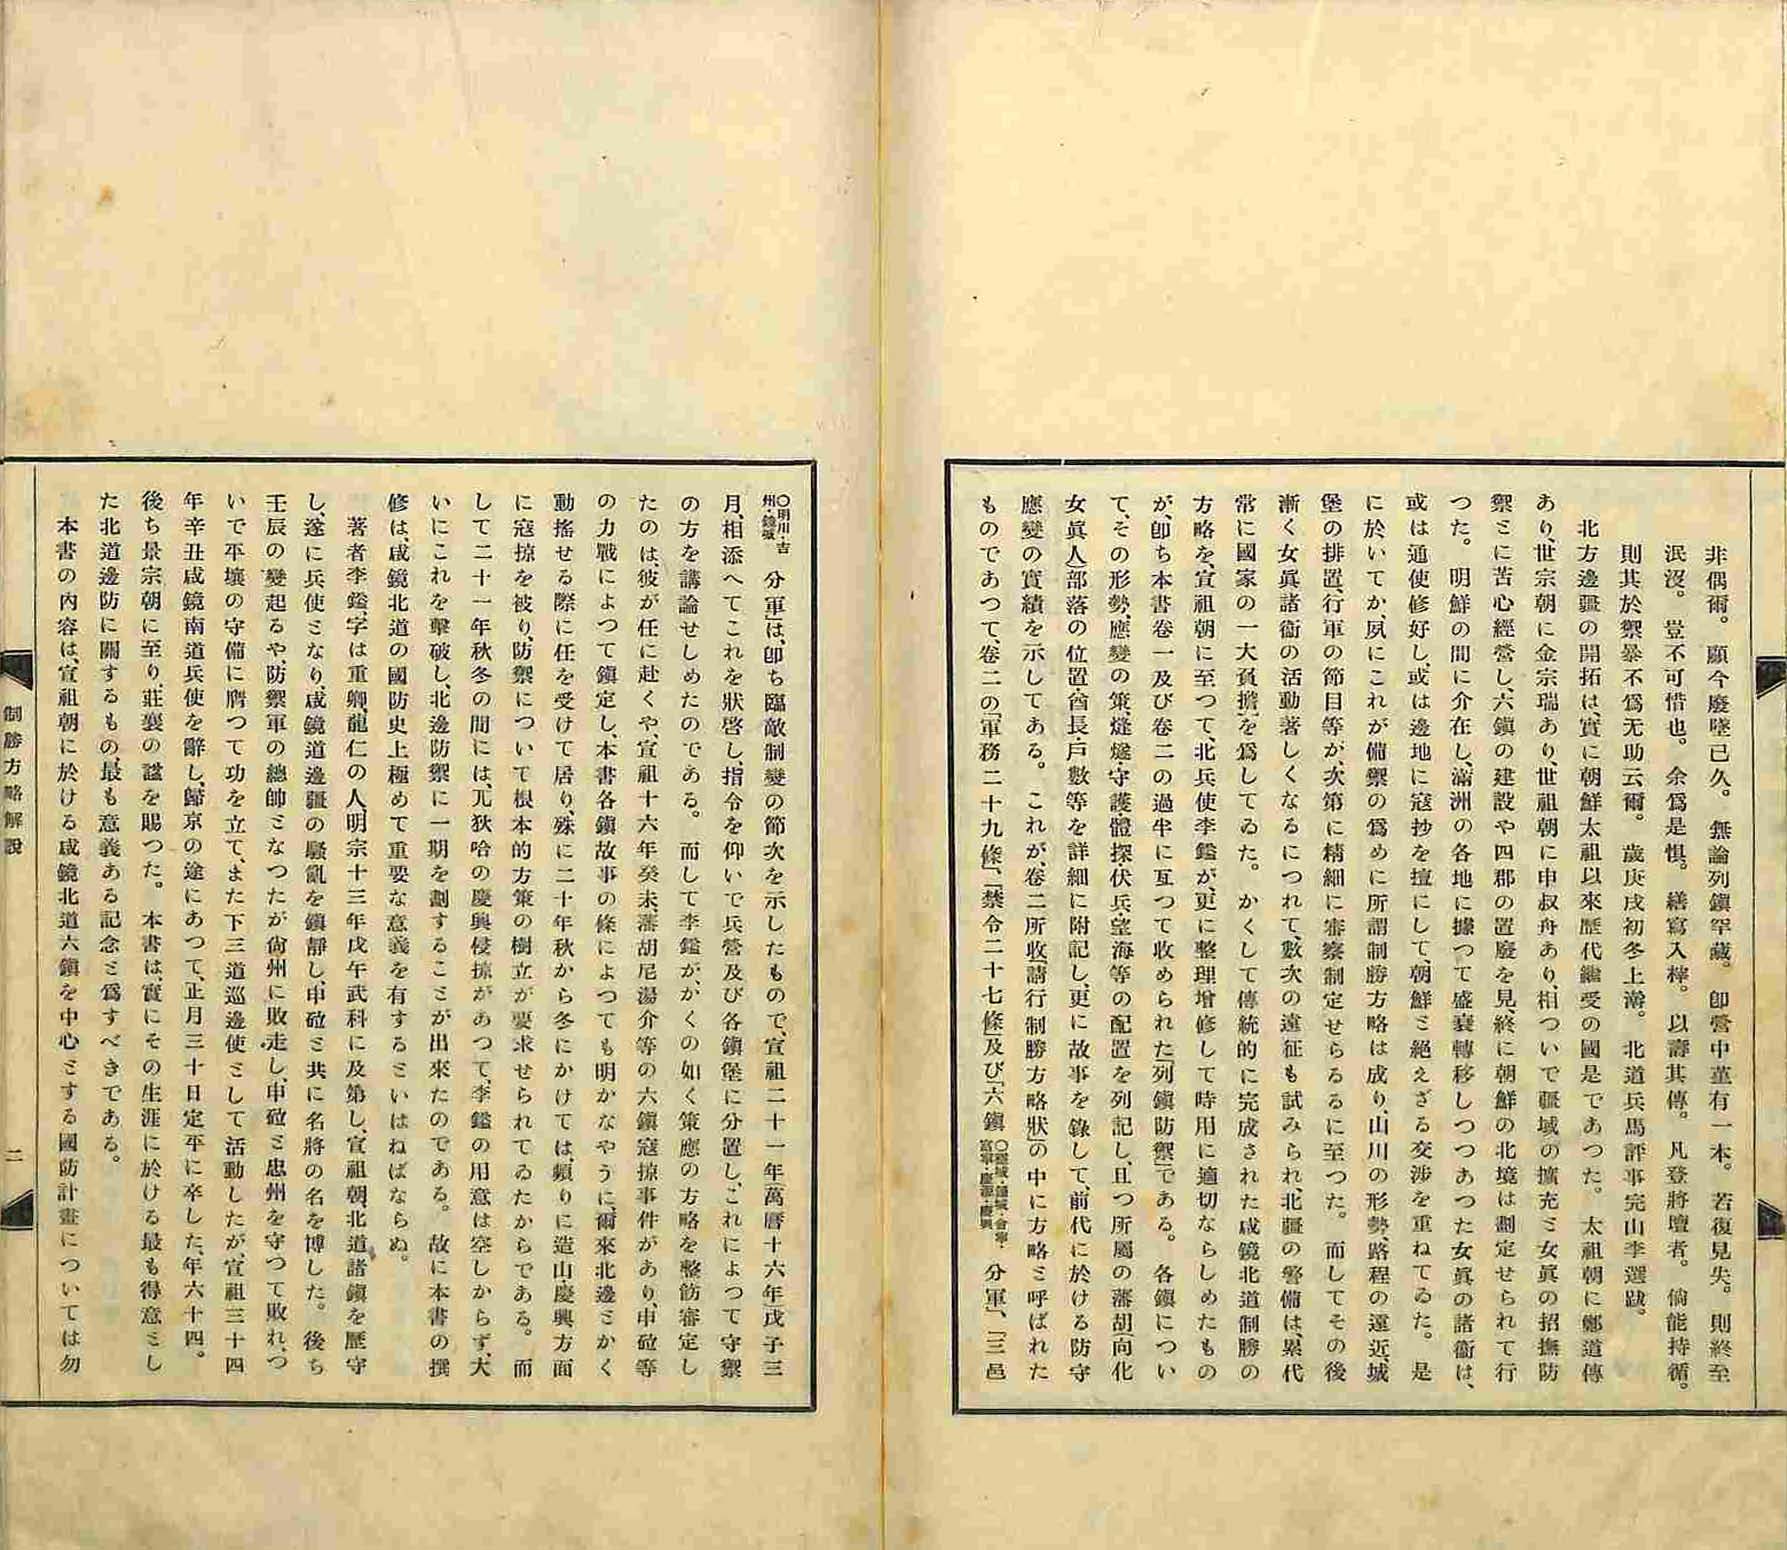 非偶爾。顧今廢墜已久。無論列鎭罕藏。卽營中菫有一本。若復見失。則終至
泯沒。豈不可惜也。余爲是惧。繕寫入梓。以壽其傳。凡登將壇者。倘能持循。
則其於禦暴不爲无助云爾。歲庚戌初冬上澣。北道兵馬評事完山李選跋。
北方邊疆の開拓は、實に朝鮮太祖以來歷代繼受の國是であつた。太祖朝に鄭道傳
あり、世宗朝に金宗瑞あり、世祖朝に申叔舟あり、相ついで疆域の擴充ミ女眞の招撫防
禦ミに苦心經營し、六鎭の建設や四郡の置廢を見、終に朝鮮の北境は劃定せられて行
つた。明鮮の間に介在し、滿洲の各地に據つて盛衰轉移しつつあつた女眞の諸衞は、
或は通使修好し、或は邊地に寇抄を擅にして、朝鮮ミ絕えざる交涉を重ねてゐた。是
に於いてか、夙にこれが備禦の爲めに所謂制勝方略は成り、山川の形勢、路程の遠近、城
堡の排置、行軍の節目等が、次第に精細に審察制定せらるるに至つた。而してその後
漸く女眞諸衞の活動著しくなるにつれて、數次の遠征も試みられ、北疆の警備は、累代
常に國家の一大負擔を爲してゐた。かくして傳統的に完成された咸鏡北道制勝の
方略を、宣祖朝に至つて、北兵使李鎰が、更に整理增修して時用に適切ならしめたもの
が、卽ち本書卷一及び卷二の過半に亙つて收められた「列鎭防禦」である。各鎭につい
て、その形勢、應變の策、烽燧、守護、體探、伏兵、望海等の配置を列記し、且つ所屬の藩胡(向化
女眞人)部落の位置、酋長、戶數等を詳細に附記し、更に故事を錄して、前代に於ける防守
應變の實績を示してある。これが、卷二所收「請行制勝方略狀」の中に方略ミ呼ばれた
ものであつて、卷二の「軍務二十九條」、「禁令二十七條」及び「六鎭〇穩城・鍾城・會寧・富寧・慶源・慶興分軍」、「三邑
〇明川・吉州・鏡城分軍」は、卽ち臨敵制變の節次を示したもので、宣祖二十一年(萬曆十六年)戊子三
月、相添へてこれを狀啓し、指令を仰いで兵營及び各鎭堡に分置し、これによつて守禦
の方を講論せしめたのである。而して李鎰が、かくの如く策應の方略を整飭審定し
たのは、彼が任に赴くや、宣祖十六年癸未、藩胡尼湯介等の六鎭寇掠事件があり、申砬等
の力戰によつて鎭定し、本書各鎭故事の條によつても明かなやうに、爾來北邊ミかく
動搖せる際に任を受けて居り、殊に二十年秋から冬にかけては、頻りに造山、慶興方面
に寇掠を被り、防禦について根本的方策の樹立が要求せられてゐたからである。而
して二十一年秋冬の間には、兀狄哈の慶興侵掠があつて、李鎰の用意は空しからず、大
いにこれを擊破し、北邊防禦に一期を劃するこミが出來たのである。故に本書の撰
修は、咸鏡北道の國防史上極めて重要な意義を有するミいはねばならぬ。
著者李鎰、字は重卿、龍仁の人、明宗十三年戊午武科に及第し、宣祖朝、北道諸鎭を歷守
し、遂に兵使ミなり、咸鏡道邊疆の騷亂を鎭靜し、申砬ミ共に名將の名を博した。後ち
壬辰の變起るや、防禦軍の總帥ミなつたが尙州に敗走し、申砬ミ忠州を守つて敗れ、つ
いで平壤の守備に膺つて功を立て、また下三道巡邊使ミして活動したが、宣祖三十四
年辛丑咸鏡南道兵使を辭し、歸京の途にあつて、正月三十日定平に卒した、年六十四。
後ち景宗朝に至り、莊襄の諡を賜つた。本書は、實にその生涯に於ける最も得意ミし
た北道邊防に關するもの、最も意義ある記念ミ爲すべきである。
本書の內容は、宣祖朝に於ける咸鏡北道六鎭を中心ミする國防計畫については勿
制勝方略解說
二